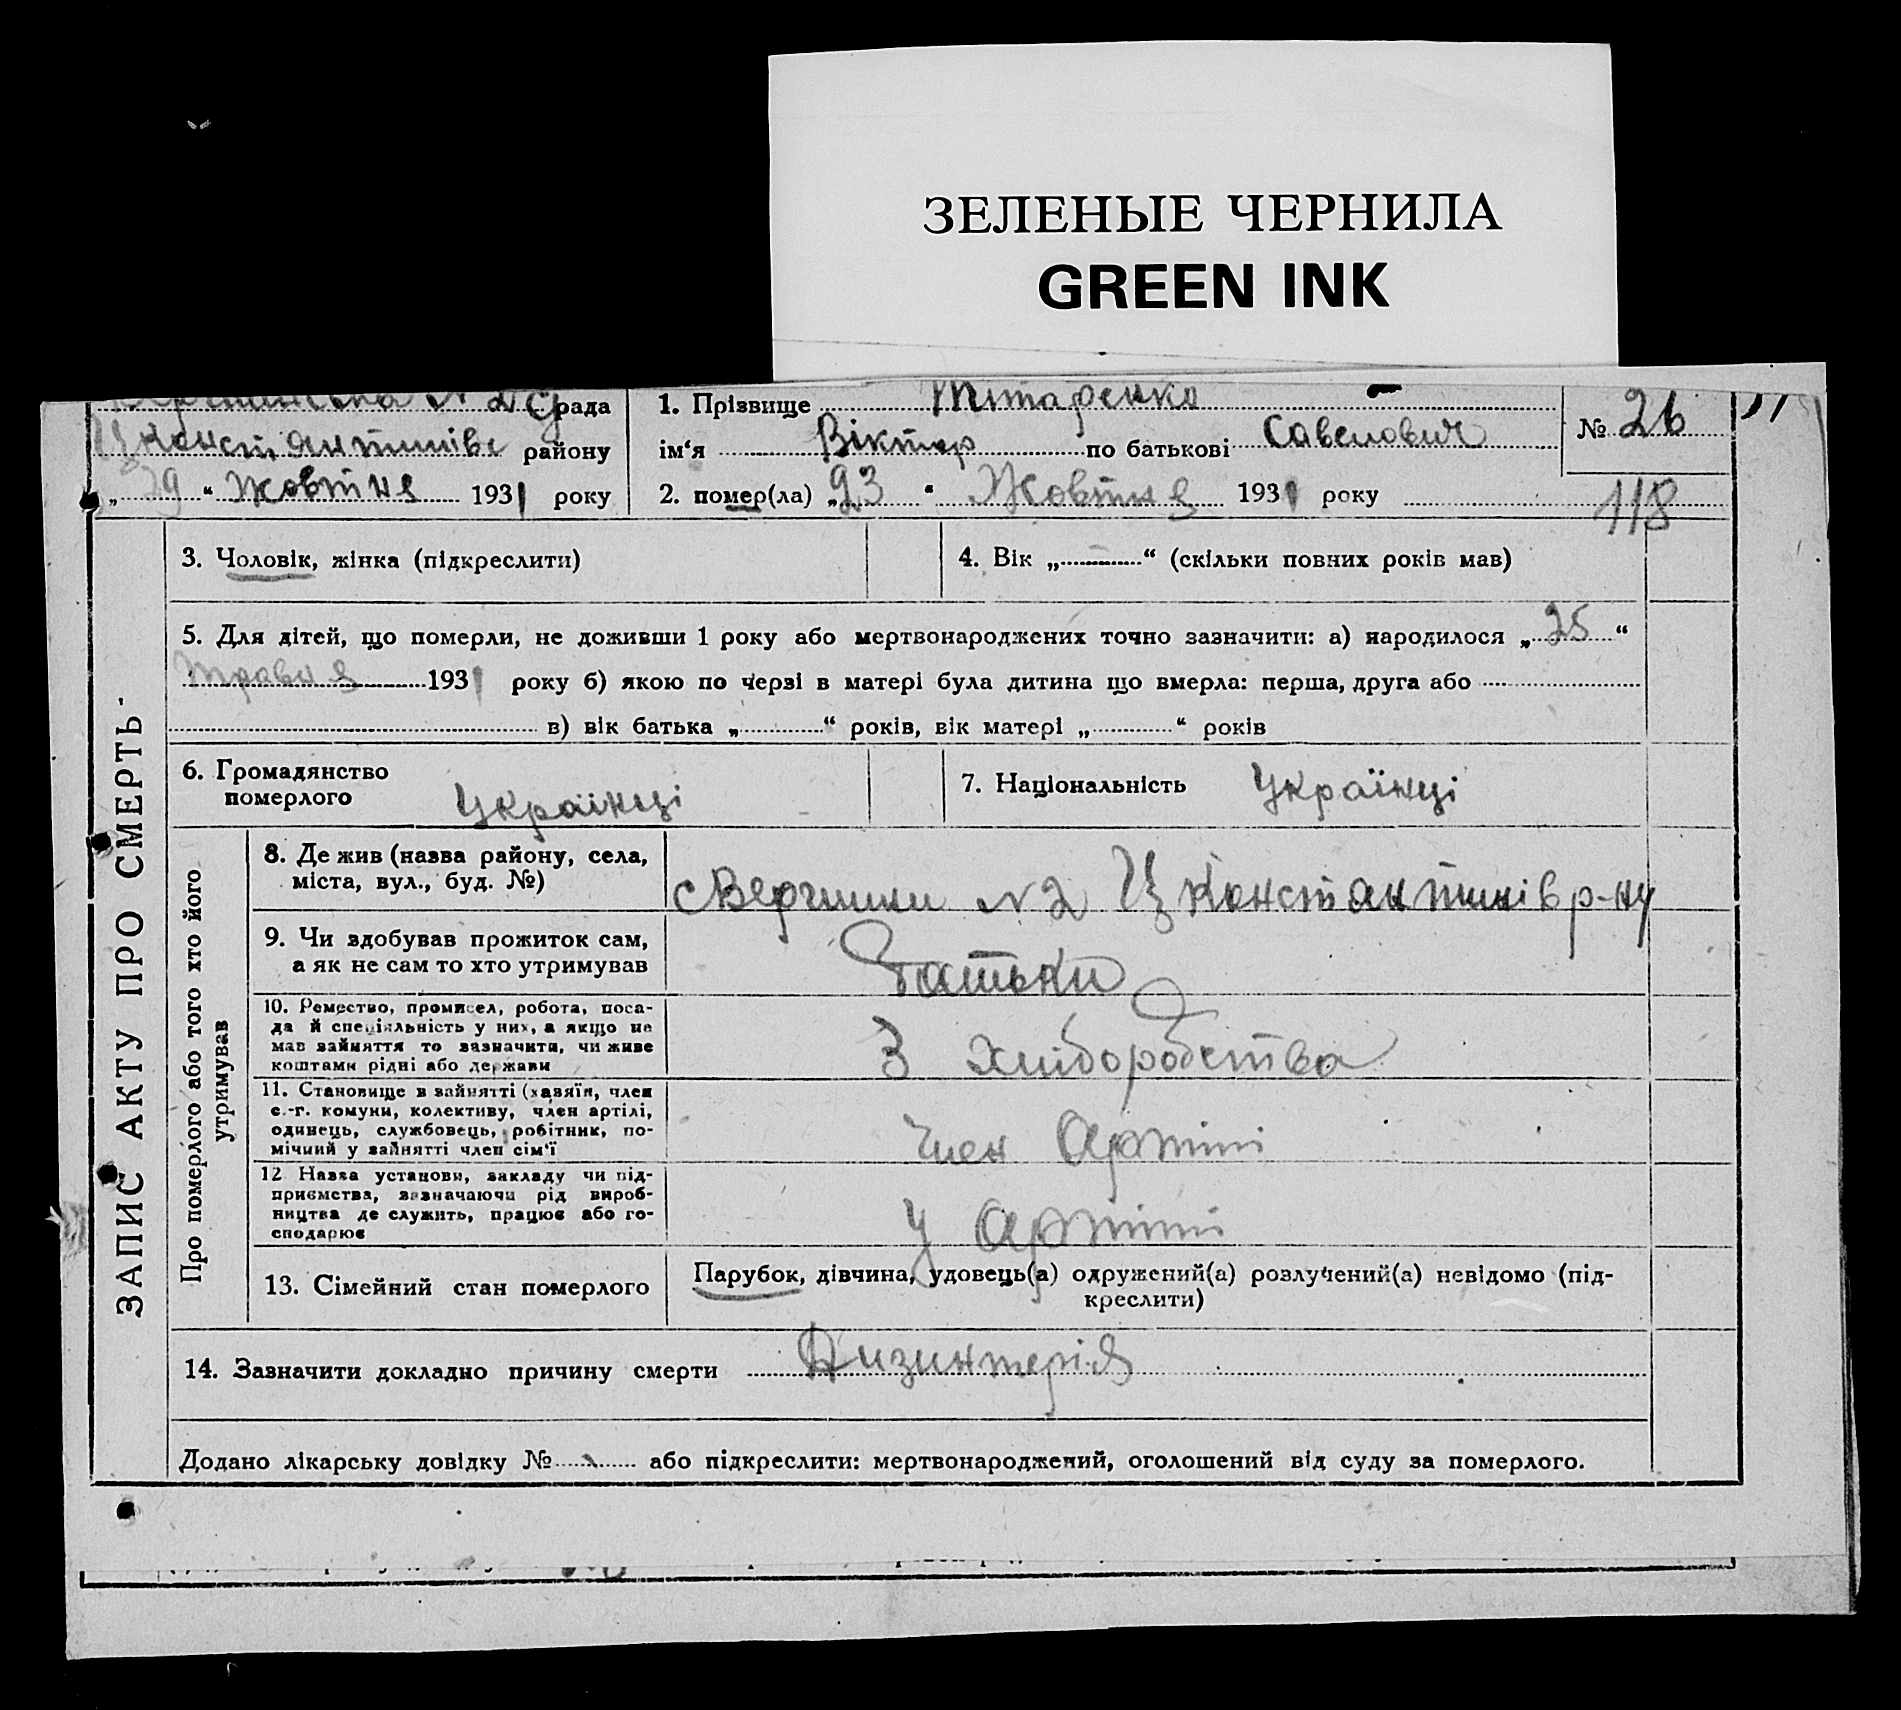 ЗЕЛЕНЫЕ ЧЕРНИЛА
GREEN INK
рада
Цконстянтинівс району
„ 29 “ Жовтня 1931 року
1. Прізвище Титаренко
ім‘я Віктор по батькові Савелович
2. помер(ла) „ 23 “ Жовтня 1931 року
№ 26
118
ЗАПИС АКТУ ПРО СМЕРТЬ
3. Чоловік, жінка (підкреслити)
4. Вік „ — “ (скільки повних років мав)
5. Для дітей, що померли, не доживши 1 року або мертвонароджених точно зазначити: а) народилося „ 25 “
травня 1931 року б) якою по черзі в матері була дитина що вмерла: перша, друга або
в) вік батька „ “ років, вік матері „ “ років
6. Громадянство
померлого Українці
7. Національність Українці
Про померлого або того хто його
утримував
8. Де жив (назва району, села,
міста, вул., буд. №)
с Вергинки №2 Ц Констянтинів р-ну
9. Чи здобував прожиток сам,
а як не сам то хто утримував
Батьки
10. Ремество, промисел, робота, поса-
да й спеціяльність у них, а якщо не
мав заняття то зазначити, чи живе
коштами рідні або держави
З хліборобства
11. Становище в зайнятті (хазяїн, член
с.-г. комуни, колективу, член артілі,
одинець, службовець, робітник, по-
мічний у зайнятті член сім‘ї
Член Артілі
12 Назва установи, закладу чи під-
приємства, зазначаючи рід вироб-
ництва де служить, працює або го-
сподарює
у Артілі
13. Сімейний стан померлого
Парубок, дівчина, удовець(а) одружений(а) розлучений(а) невідомо (під-
креслити)
14. Зазначити докладно причину смерти Дизинтерія
Додано лікарську довідку № або підкреслити: мертвонароджений, оголошений від суду за померлого.